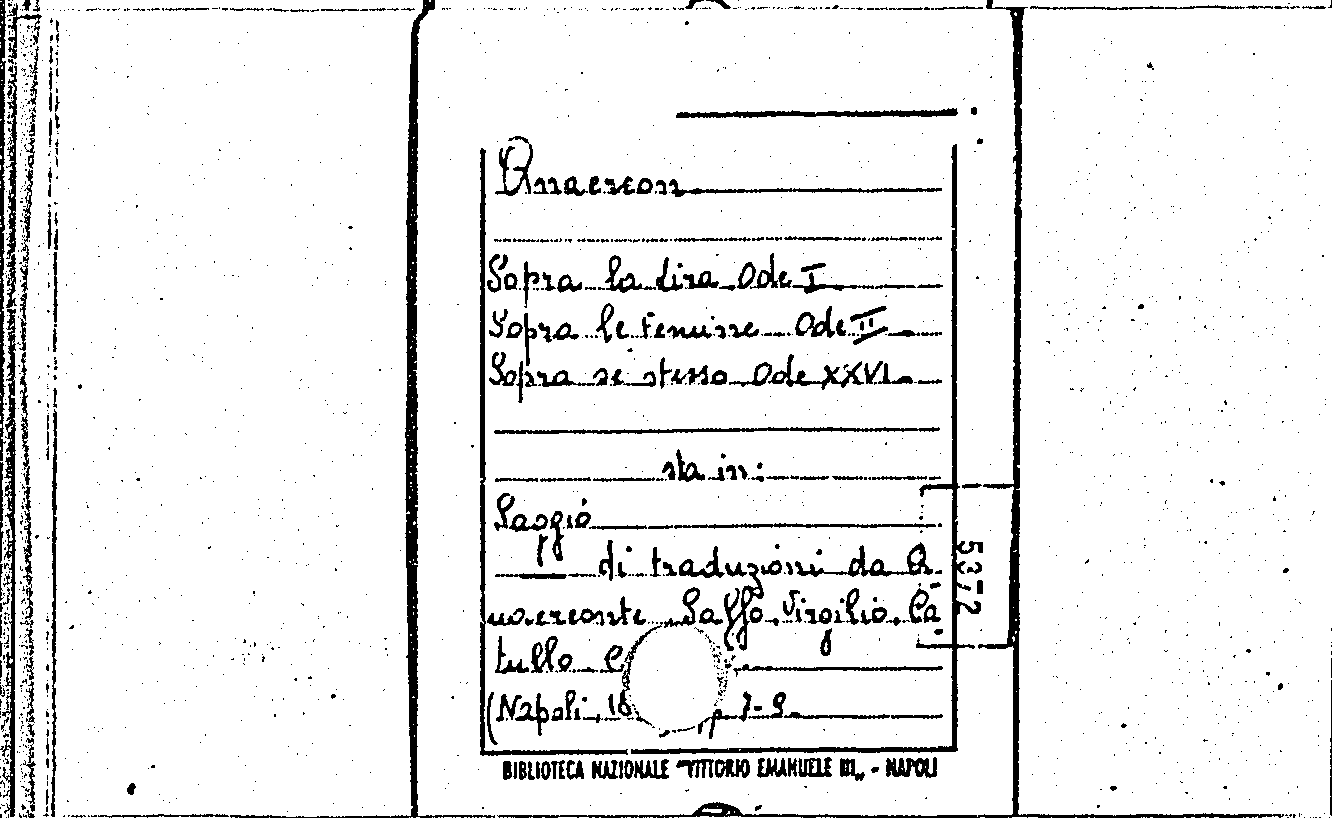 Anacreon
Sopra la lira Ode I
Sopra le Femine Ode II
Sopra se stesso Ode XXVI
sta in:
Saggio
di traduzioni da A-
nacreonte, Saffo, Virgilio, Ca-
tullo
(Napoli, 18 p. 7-9.
5372
BIBLIOTECA NAZIONALE "VITTORIO EMANUELE III„ - NAPOLI